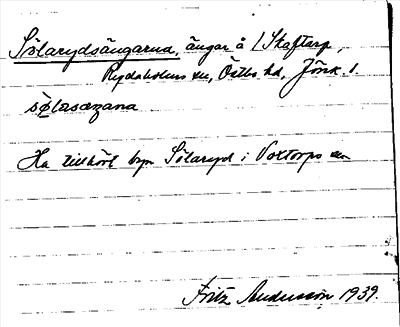 Sölarydsängarna, ängar å 1 Skaftarp,
Rydaholms sn, Östbo hd, Jönk. l.
Ha tillhört byn Sölaryd i Voxtorps sn
Fritz Andersson 1939.